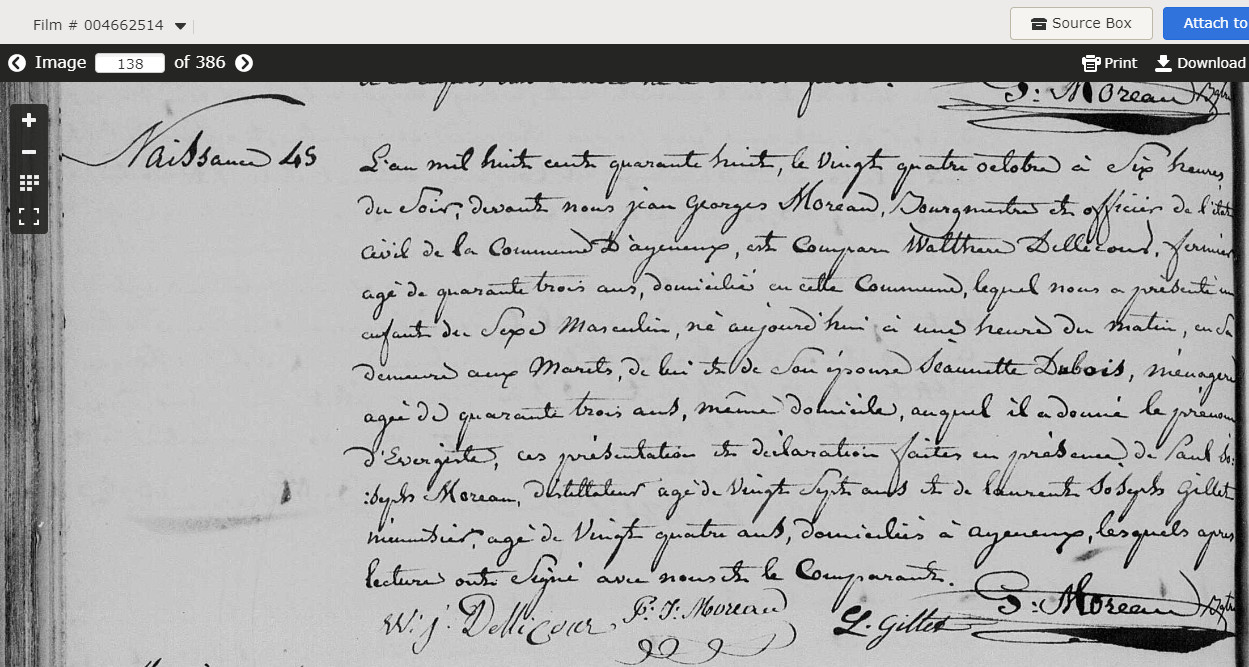 Film # 004662514
Source Box
Attach to
Image 138 of 386
Print
Download
J: Moreau Bgtre
Naissance 45
L'an mil huit cents quarante huit, le vingt quatre octobre à Six heures
du Soir, devant nous jean Georges Moreau, Bourgmestre et officier de l'état
civil de la Commune D'ayeneux, est Comparu Walthere Dellicour, fermier
agé de quarante trois ans, domicilié en cette Commune, lequel nous a présenté un
enfant du Sexe Masculin, né aujourd'hui à une heure du matin, en Sa
demeure aux Marets, de lui et de Son épouse Jeannette Dubois, ménagere
agée de quarante trois ans, même domicile, auquel il a donné le prénom
d'Evergiste, ces présentation et déclaration faites en présence de Paul Jo:
:Seph Moreau, distillateur agé de Vingt Sept ans et de laurent Joseph Gillet
menuisier, agé de Vingt quatre ans, domiciliés à ayeneux, lesquels apres
lecture ont Signé avec nous et le Comparant.
W: j: Dellicour P: J: Moreau L. Gillet J: Moreau Bgtre